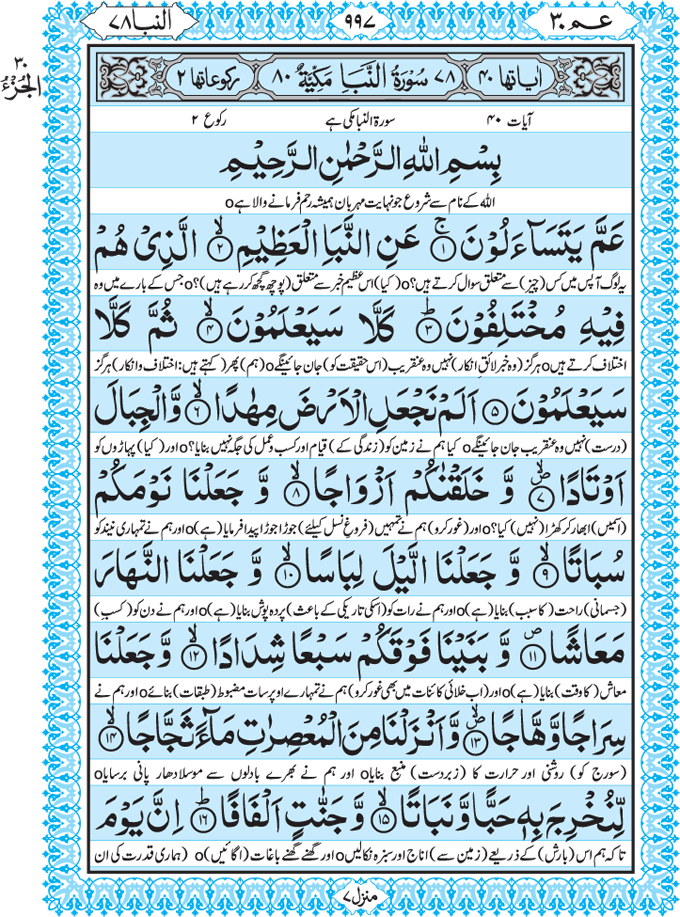 عـمـ ٣٠
٩٩٧
النبا ٧٨
٣٠
الجزء
اٰیاتها ٤٠
٧٨ سُوْرَةُ النَّبَاِ مَكِّيَّةٌ ٨٠
رکوعاتها ٢
آیات ۴۰ سورۃ النبا مکی ہے رکوع ۲
بِسْمِ اللهِ الرَّحْمٰنِ الرَّحِيْمِ
اللہ کے نام سے شروع جو نہایت مہربان ہمیشہ رحم فرمانے والا ہے o
عَمَّ يَتَسَآءَلُوْنَۚ ۝١ عَنِ النَّبَاِ الْعَظِيْمِۙ ۝٢ الَّذِيْ هُمْ
یہ لوگ آپس میں کس (چیز) سے متعلق سوال کرتے ہیں؟ o (کیا) اس عظیم خبر سے متعلق (پوچھ گچھ کر رہے ہیں)؟ o جس کے بارے میں وہ
فِيْهِ مُخْتَلِفُوْنَؕ ۝٣ كَلَّا سَيَعْلَمُوْنَۙ ۝٤ ثُمَّ كَلَّا
اختلاف کرتے ہیں o ہرگز (وہ خبر لائقِ انکار) نہیں وہ عنقریب (اس حقیقت کو) جان جائینگے o (ہم) پھر (کہتے ہیں: اختلاف و انکار) ہرگز
سَيَعْلَمُوْنَ ۝٥ اَلَمْ نَجْعَلِ الْاَرْضَ مِهٰدًاۙ ۝٦ وَّالْجِبَالَ
(درست) نہیں وہ عنقریب جان جائینگے o کیا ہم نے زمین کو (زندگی کے) قیام اور کسب و عمل کی جگہ نہیں بنایا؟ o اور (کیا) پہاڑوں کو
اَوْتَادًاۖ ۝٧ وَّ خَلَقْنٰكُمْ اَزْوَاجًاۙ ۝٨ وَّ جَعَلْنَا نَوْمَكُمْ
(اس میں) ابھار کر کھڑا (نہیں) کیا؟ o اور (غور کرو) ہم نے تمہیں (فروغِ نسل کیلئے) جوڑا جوڑا پیدا فرمایا (ہے) o اور ہم نے تمہاری نیند کو
سُبَاتًاۙ ۝٩ وَّ جَعَلْنَا الَّيْلَ لِبَاسًاۙ ۝١٠ وَّ جَعَلْنَا النَّهَارَ
(جسمانی) راحت (کا سبب) بنایا (ہے) o اور ہم نے رات کو (اسکی تاریکی کے باعث) پردہ پوش بنایا (ہے) o اور ہم نے دن کو (کسبِ)
مَعَاشًاۖ ۝١١ وَّ بَنَيْنَا فَوْقَكُمْ سَبْعًا شِدَادًاۙ ۝١٢ وَّجَعَلْنَا
معاش (کا وقت) بنایا (ہے) o اور (اب خلائی کائنات میں بھی غور کرو) ہم نے تمہارے اوپر سات مضبوط (طبقات) بنائے o اور ہم نے
سِرَاجًا وَّهَّاجًاۖ ۝١٣ وَّاَنْزَلْنَا مِنَ الْمُعْصِرٰتِ مَآءً ثَجَّاجًاۙ ۝١٤
(سورج کو) روشنی اور حرارت کا (زبردست) منبع بنایا o اور ہم نے بھرے بادلوں سے موسلادھار پانی برسایا o
لِّنُخْرِجَ بِهٖ حَبًّا وَّنَبَاتًاۙ ۝١٥ وَّ جَنّٰتٍ اَلْفَافًاؕ ۝١٦ اِنَّ يَوْمَ
تاکہ ہم اس (بارش) کے ذریعے (زمین سے) اناج اور سبزہ نکالیں o اور گھنے گھنے باغات (اگائیں) o (ہماری قدرت کی ان
منزل ۷